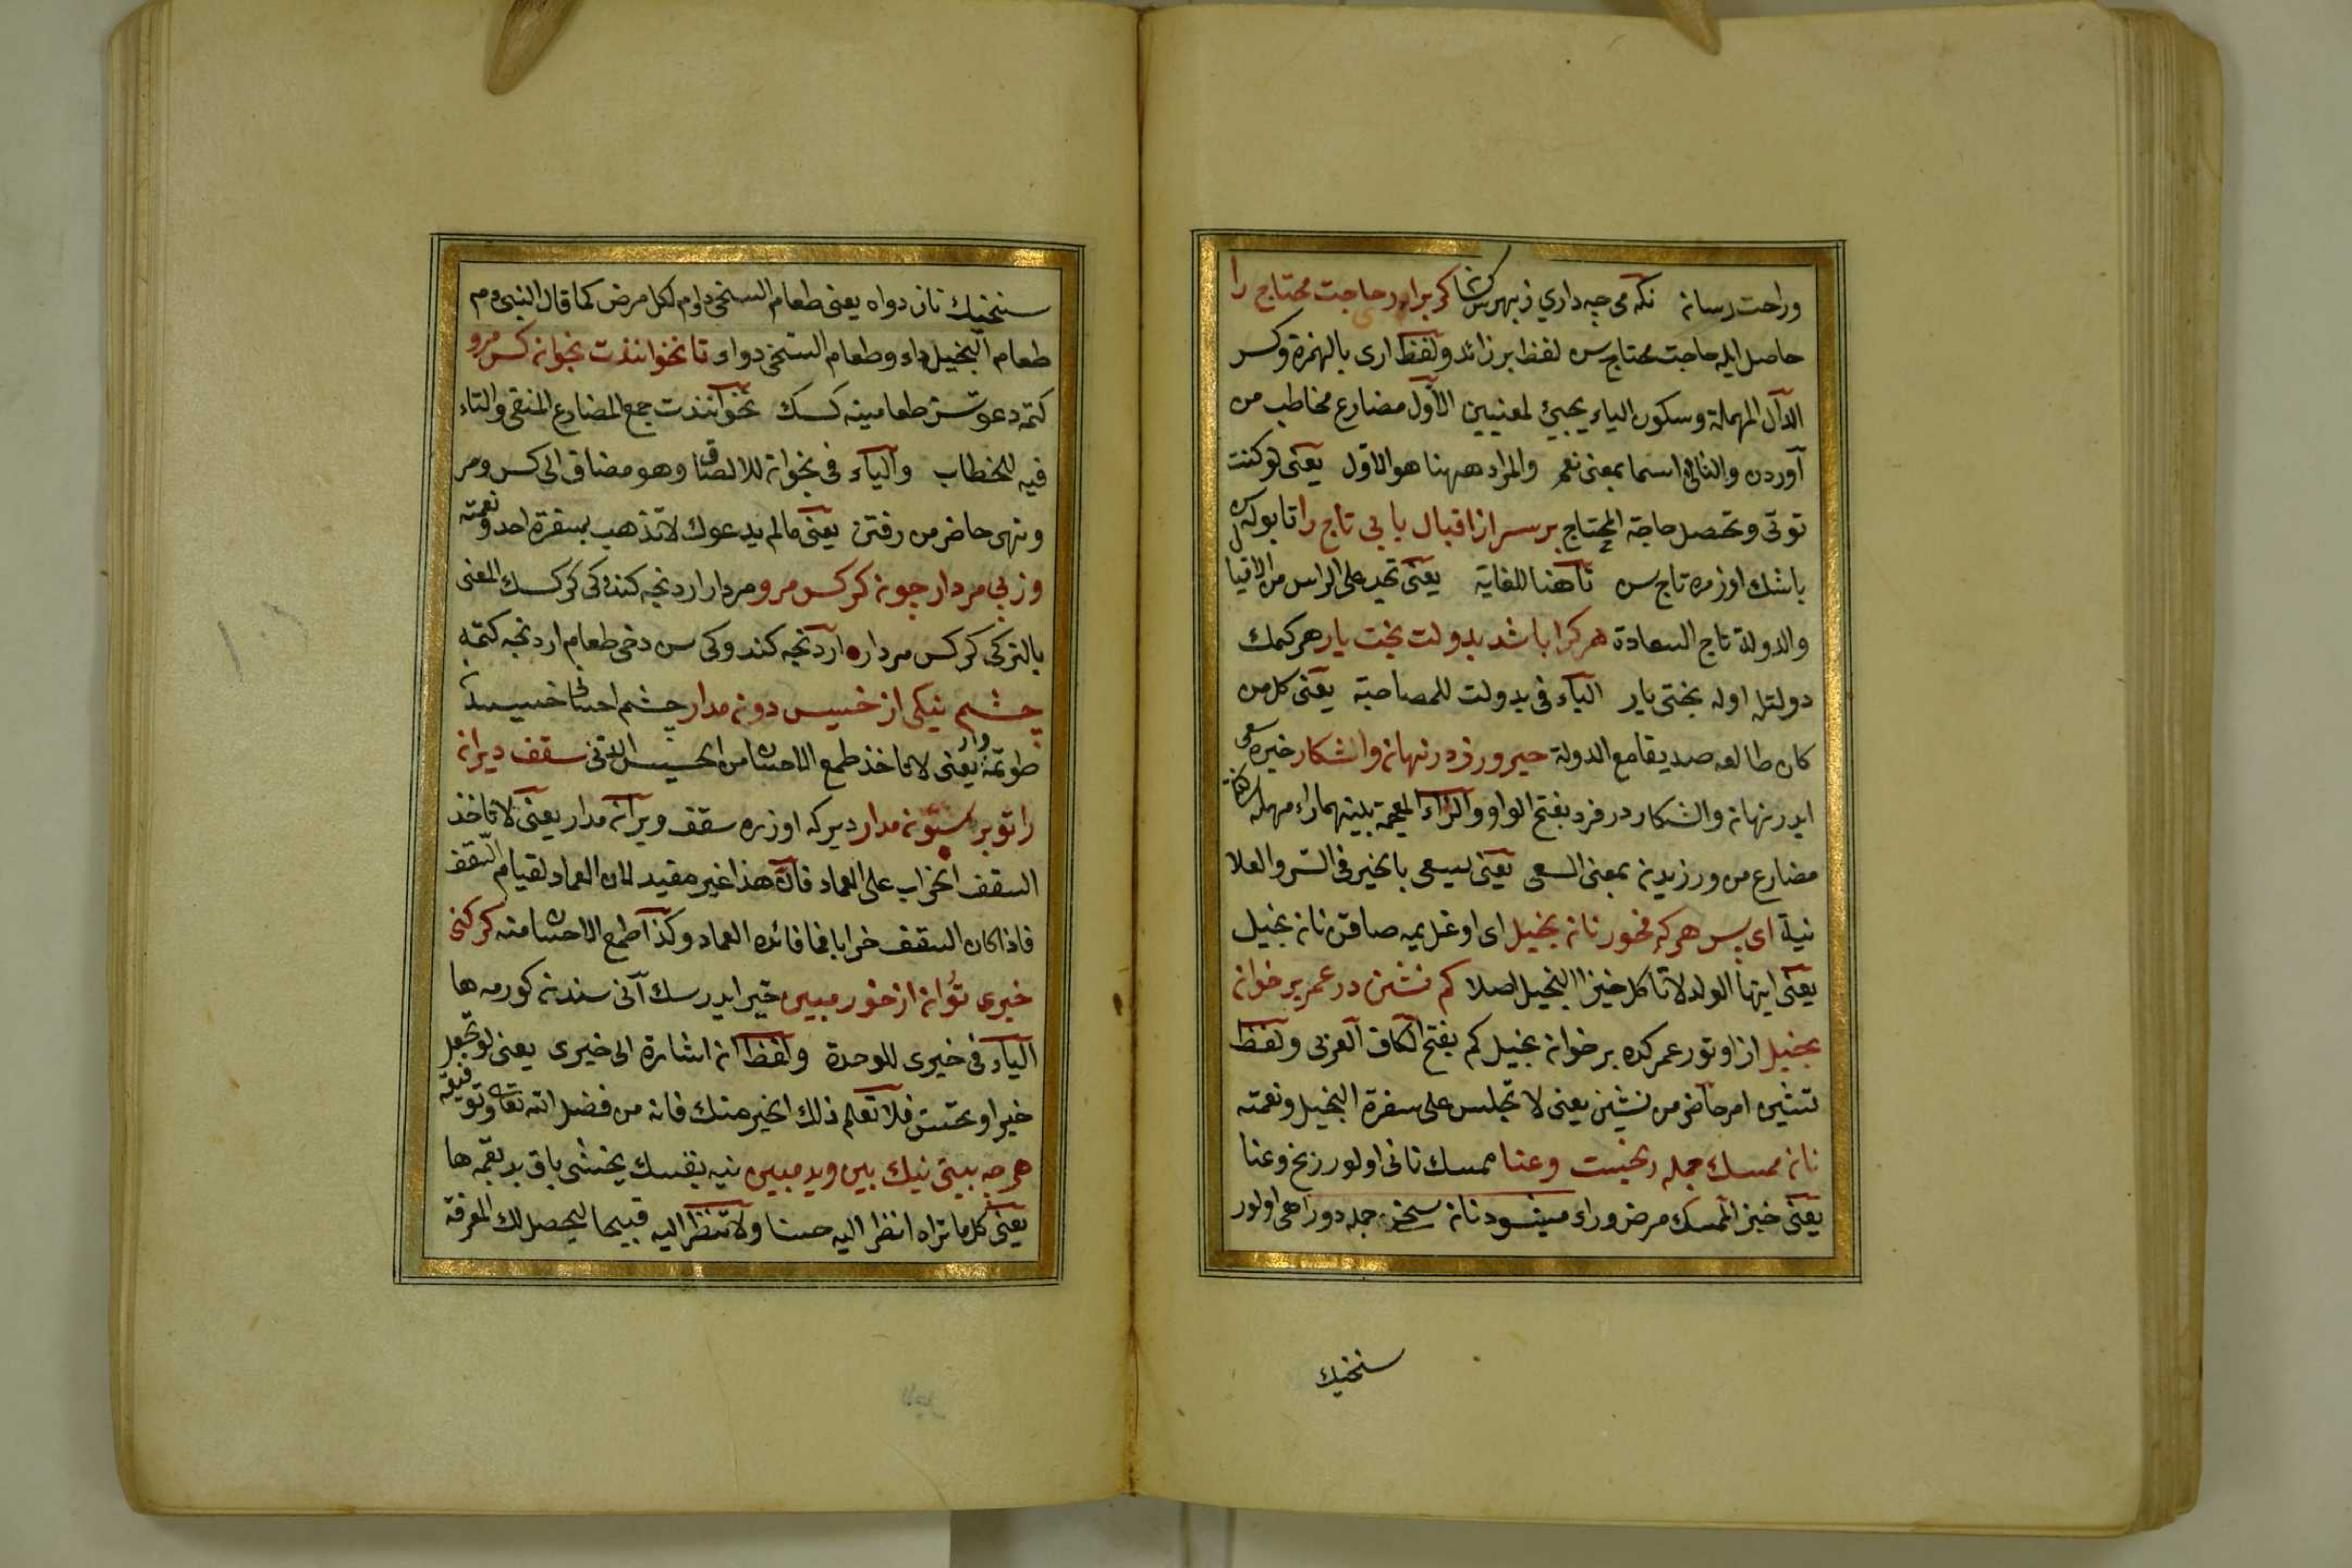 وراحت رسانه نكه مى چه داري زبهرش كر برارد حاجت محتاج را
حاصل ايله حاجت محتاج س لفظ بر زائد ولفظ ارى بالهمزة وكسر
الدال المهملة وسكون الياء يجيئ لمعنيين الاول مضارع مخاطب من
آوردن والثانى اسما بمعنى نعم والمراد ههنا هو الاول يعنى لو كنت
توتى وتحصل حاجة المحتاج بر سر از اقبال يابى تاج را تا بوله س
باشك اوزره تاج س تا هنا للغاية يعنى تجد على الراس من الاقبا
والدولة تاج السعادة هر كرا باشد بدولت بخت يار هر كمك
دولتله اوله بختى يار الباء فى بدولت للمصاحبة يعنى كل من
كان طالعه صديقا مع الدولة خير ورزد در نهان واشكار خيره سعى
ايدر نهان واشكار در فرد بفتح الواو والزاء المعجمة بينهما راء مهملة
مضارع من ورزيدن بمعنى السعى يعنى يسعى بالخير فى السر والعلا
نية اى پس هركه مخور نان بخيل اى اوغل يمه صاقن نان بخيل
يعنى ايها الولد لا تاكل خبز البخيل اصلا كم نشين در عمر بر خوان
بخيل از اوتور عمركده بر خوان بخيل كم بفتح الكاف العربى ولفظ
نشين امر حاضر من نشين يعنى لا تجلس على سفرة البخيل ونعمته
نان ممسك جمله رنجست وعنا ممسك نانى اولور رنج وعنا
يعنى خبز الممسك مرض وراء ميشود نان سخى جمله دوا هى اولور
سنخيك
سنخيك نان دواه يعنى طعام السخى دام لكل مرض كما قال النبى عم
طعام البخيل داء وطعام السخى دواء تا نخوانندت بخوان كس مرو
كتمه دعوتسز طعامينه كسك نخوانندت جمع المضارع المنفى والتاء
فيه للخطاب والباء فى بخوان للالصاق وهو مضاف الى كس ومر
ونهى حاضر من رفتن يعنى مالم يدعوك لا تذهب بسفرة احد ونعمته
وز پى مردار چون كركس مرو مردار اردنجه كنده كى كركسك المعنى
بالتركى كركس مردار اردنجه كندوكى س دخى طعام اردنجه كتمه
چشم نيكى از خسيس دون مدار چشم احسان خسيسدن
طوتمه يعنى لا تاخذ طمع الاحسان من الخسيس الدنى سقف ديران
را تو بر ستون مدار ديركه اوزره سقف ويران مدار يعنى لا تاخذ
السقف الخراب على العماد فان هذا غير مفيد لان العماد لقيام السقف
فاذا كان السقف خرابا فما فائده العماد وكذا طمع الاحسان منه كر كنى
خيرى تو ان از خود مبين خير ايدرسك آنى سندن كورمه ها
الياء فى خيرى للوحدة ولفظ ان اشارة الى خيرى يعنى لو تجعل
خيرا وتحسن فلا تعلم ذلك الخير منك فانه من فضل الله تعالى وتوفيقه
هر چه بينى نيك بين وبد مبين نيه بقسك يخشى باق بد بقمه ها
يعنى كل ما تراه انظر اليه حسنا ولا تنظر اليه قبيحا ليحصل لك المعرفة